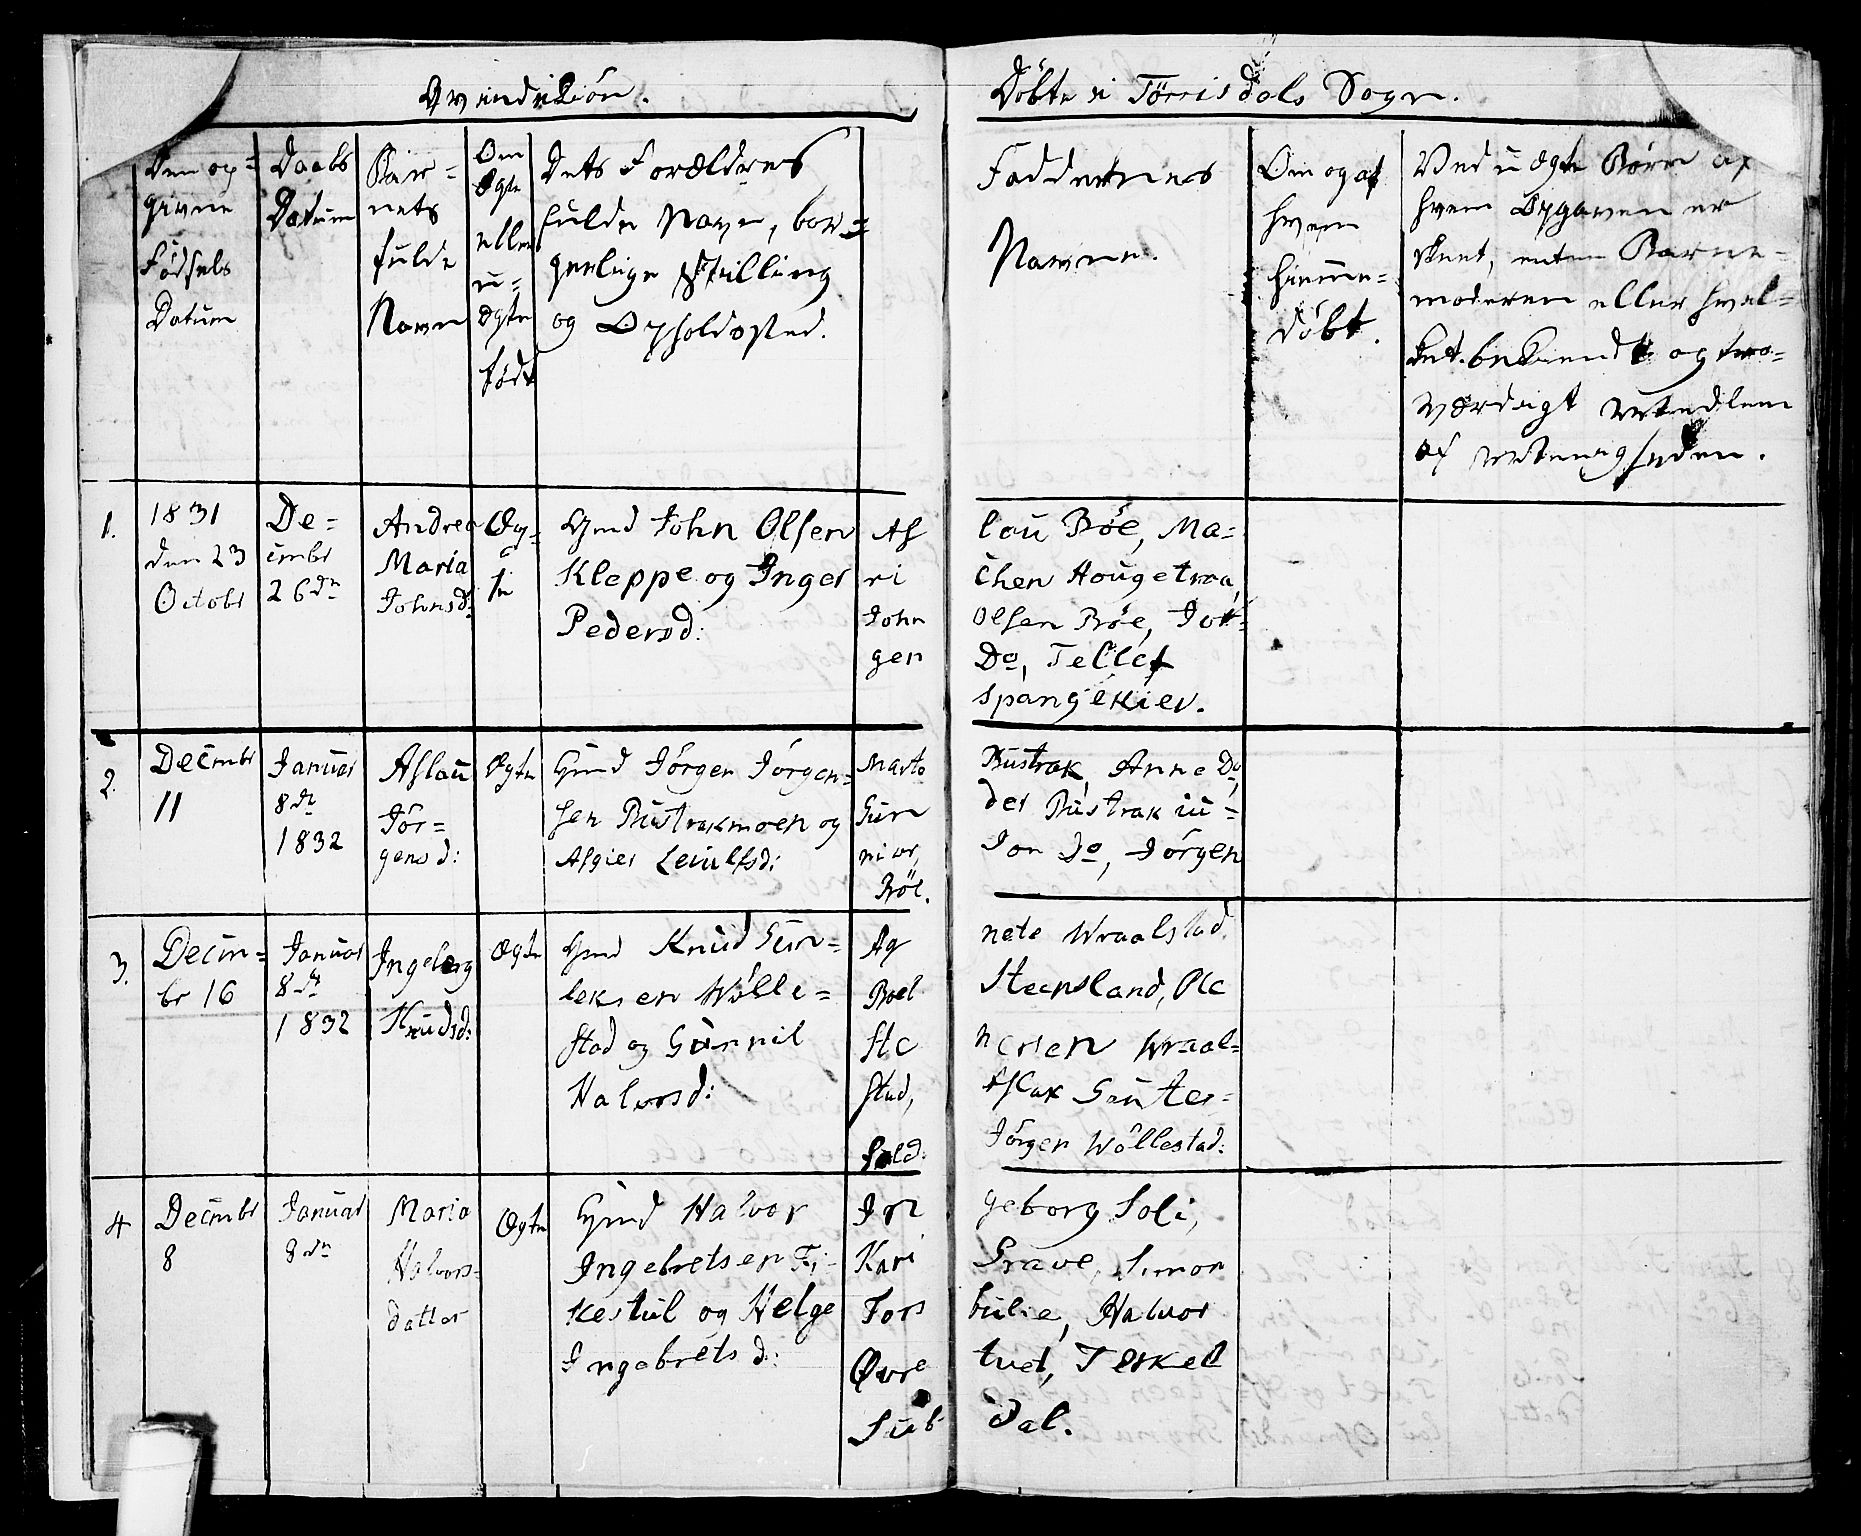 Qvindekiön.
Döbte i Törrisdals Sogn.
Den op=
givne
Födsels
Datum
Daabs
Datum
Bar=
nets
fulde
Navn
Om
Ægte
eller
u=
ægte
födt
Dets Forældres
fulde Navn, bor=
gerlige Stilling
og Opholdssted.
Faddernes
Navne.
Om og af
hvem
hiemme-
döbt.
Ved uægte Börn af
hvem Opgaven er
skeet, enten Barne-
moderen eller hvil-
ket bekiendt og tro-
værdigt
af
1.
1831
den 23
Octobr
De=
cembr
26de
Andrea
Maria
Johnsd:
Æg-
te
Gmd John Olsen
Kleppe og Inger
Pedersd:
As
ri
John
gen
lau Böe, Ma-
chen Hougetraa,
Olsen Böe, Jör-
Do, Tellef
Spangekiev.
2.
Decembr
11
Januar
8de
1832
Aslau
Jör=
gensd:
Ægte
Gmd Jörgen Jörgen=
sen Bustrakmoen og
Asgier Leiulfsd:
Marte
Gun
nior,
Böe.
Bustrak, Anne Do,
der Bustrak iu-
Jon Do, Jörgen
3.
Decem=
br 16
Januar
8de
1832
Ingeborg
Knudsd:
Ægte
Gmd Knud Gun=
leksen Wölle=
stad og Gunnil
Halvorsd:
Ag
Boel
Ste
stad,
sold.
nete Wraalstad.
Steensland, Ole
nersen Wraal=
Aslak Gunter-
Jörgen Wöllestad.
4
Decembr
8
Januar
8de
Maria
Halvors-
datter
Ægte
Gmd Halvor
Ingebretsen Fi-
kestul og Helge
Ingebretsd:
In
Kari
Fors
Øvre
Sub
geborg Soli,
Grave, Simon
bulie, Halvor
tvet, Terkel
dal.